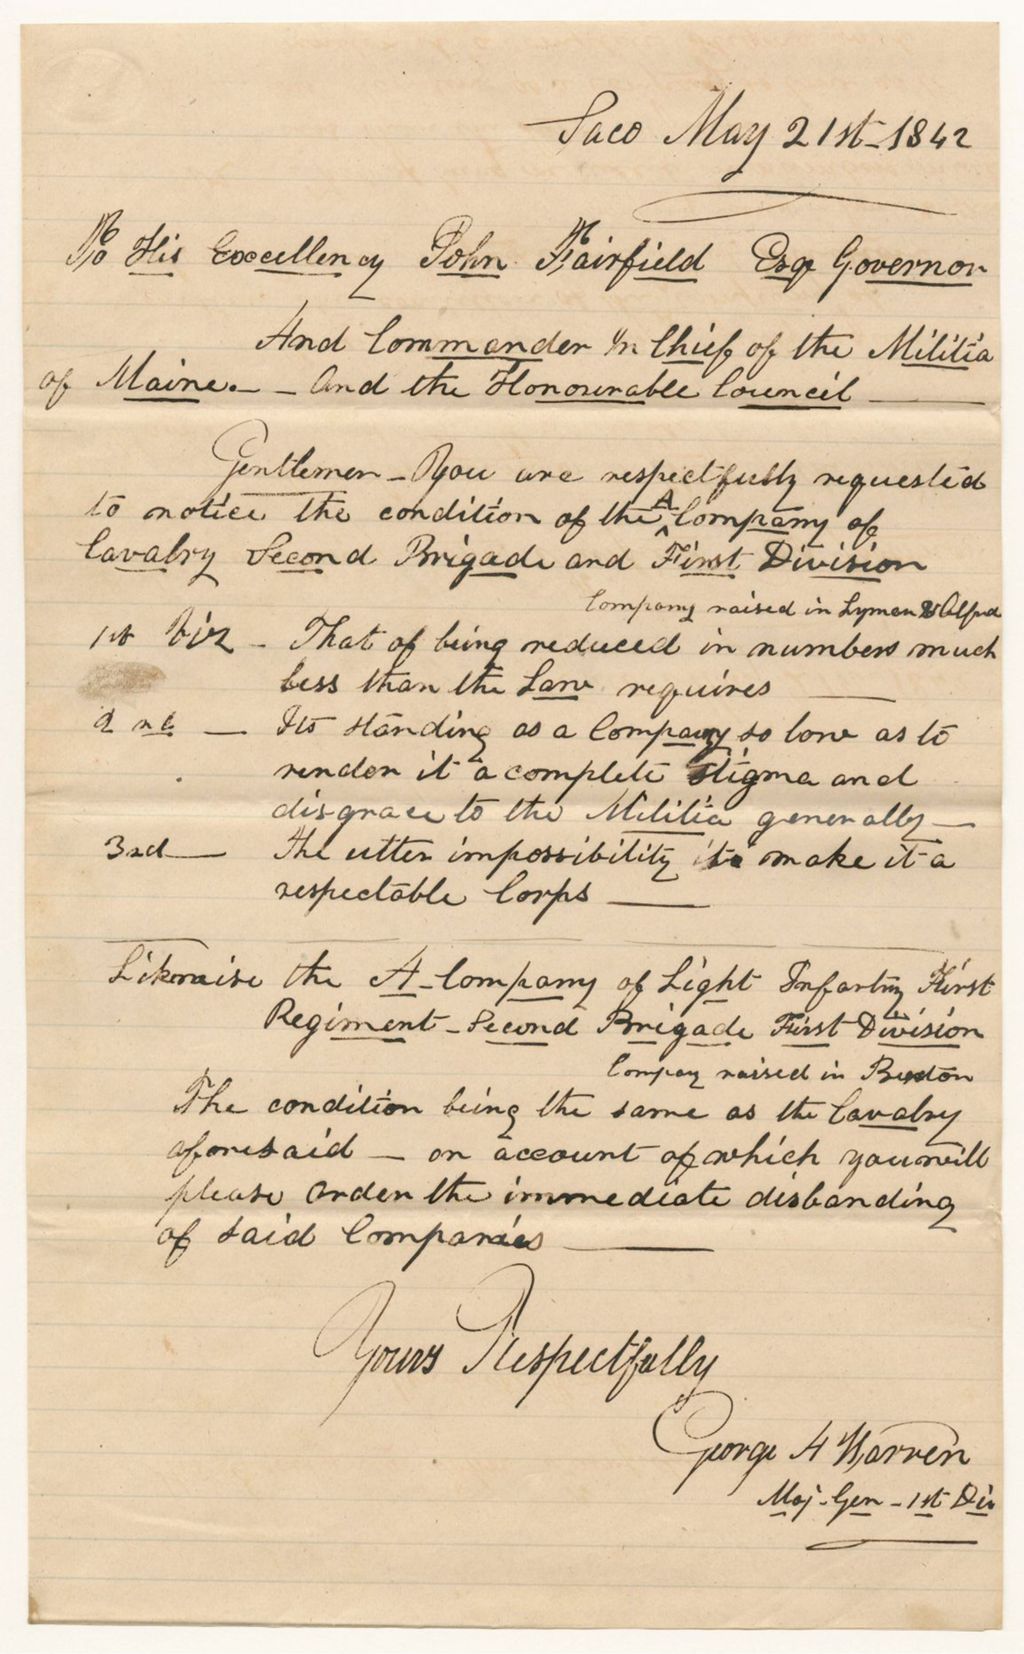 Saco May 21st - 1842
To His Excellency John Fairfield Esqr Governor
And Commander In Chief of the Militia
of Maine. - - And the Honourable Council
Gentlemen - You are respectfully requested
to notice the condition of the A Company of
Cavalry Second Brigade and First Division
Company raised in Lyman & Alfred
1st Viz - That of being reduced in numbers much
less than the Law requires
2nd - Its standing as a Company so low as to
render it a complete Stigma and
disgrace to the Militia generally -
3rd - The utter impossibility to make it a
respectable Corps
Likewise the A - Company of Light Infantry First
Regiment - Second Brigade First Division
Company raised in Buxton
The condition being the same as the Cavalry
aforesaid - on account of which you will
please order the immediate disbanding
of said Companies
Yours Respectfully
George A Warren
Maj - Gen - 1st Div